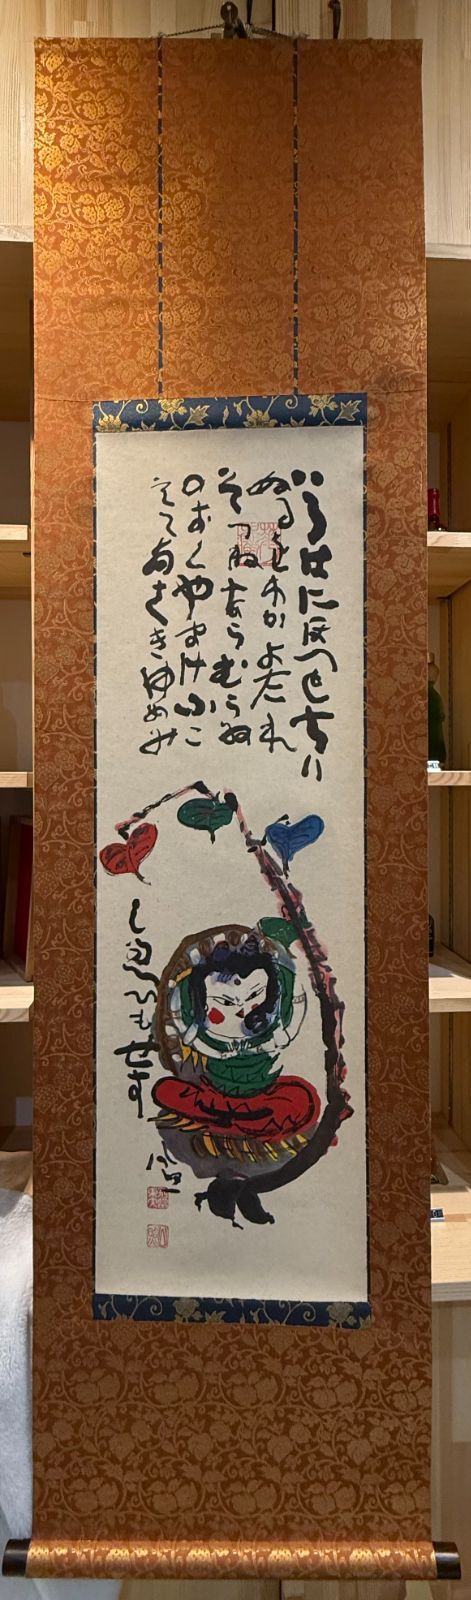 いろはにほへとちり
ぬるをわかよたれ
そつねならむうゐ
のおくやまけふこ
えてあさきゆめみ
しゑひもせす